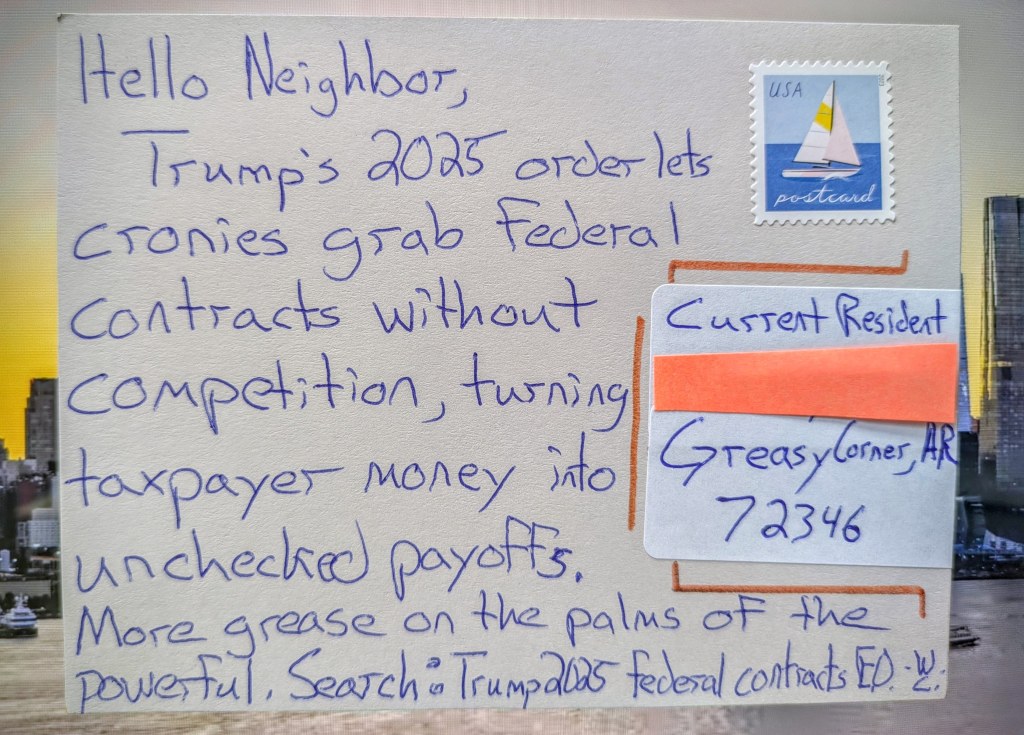 Hello Neighbor,
Trump's 2025 order lets
cronies grab Federal
contracts without
competition, turning
taxpayer money into
unchecked payoffs.
More grease on the palms of the
powerful. Search: Trump 2025 federal contracts ED.-W.
USA
postcard
Current Resident
Greasy Corner, AR
72346